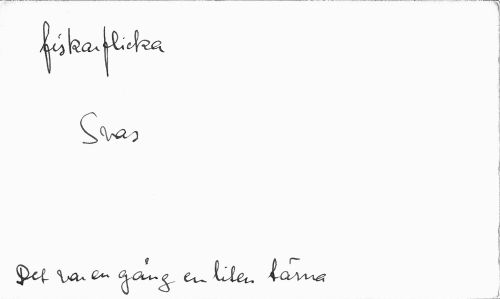 fiskarflicka
Svar
Det var en gång en liten tärna